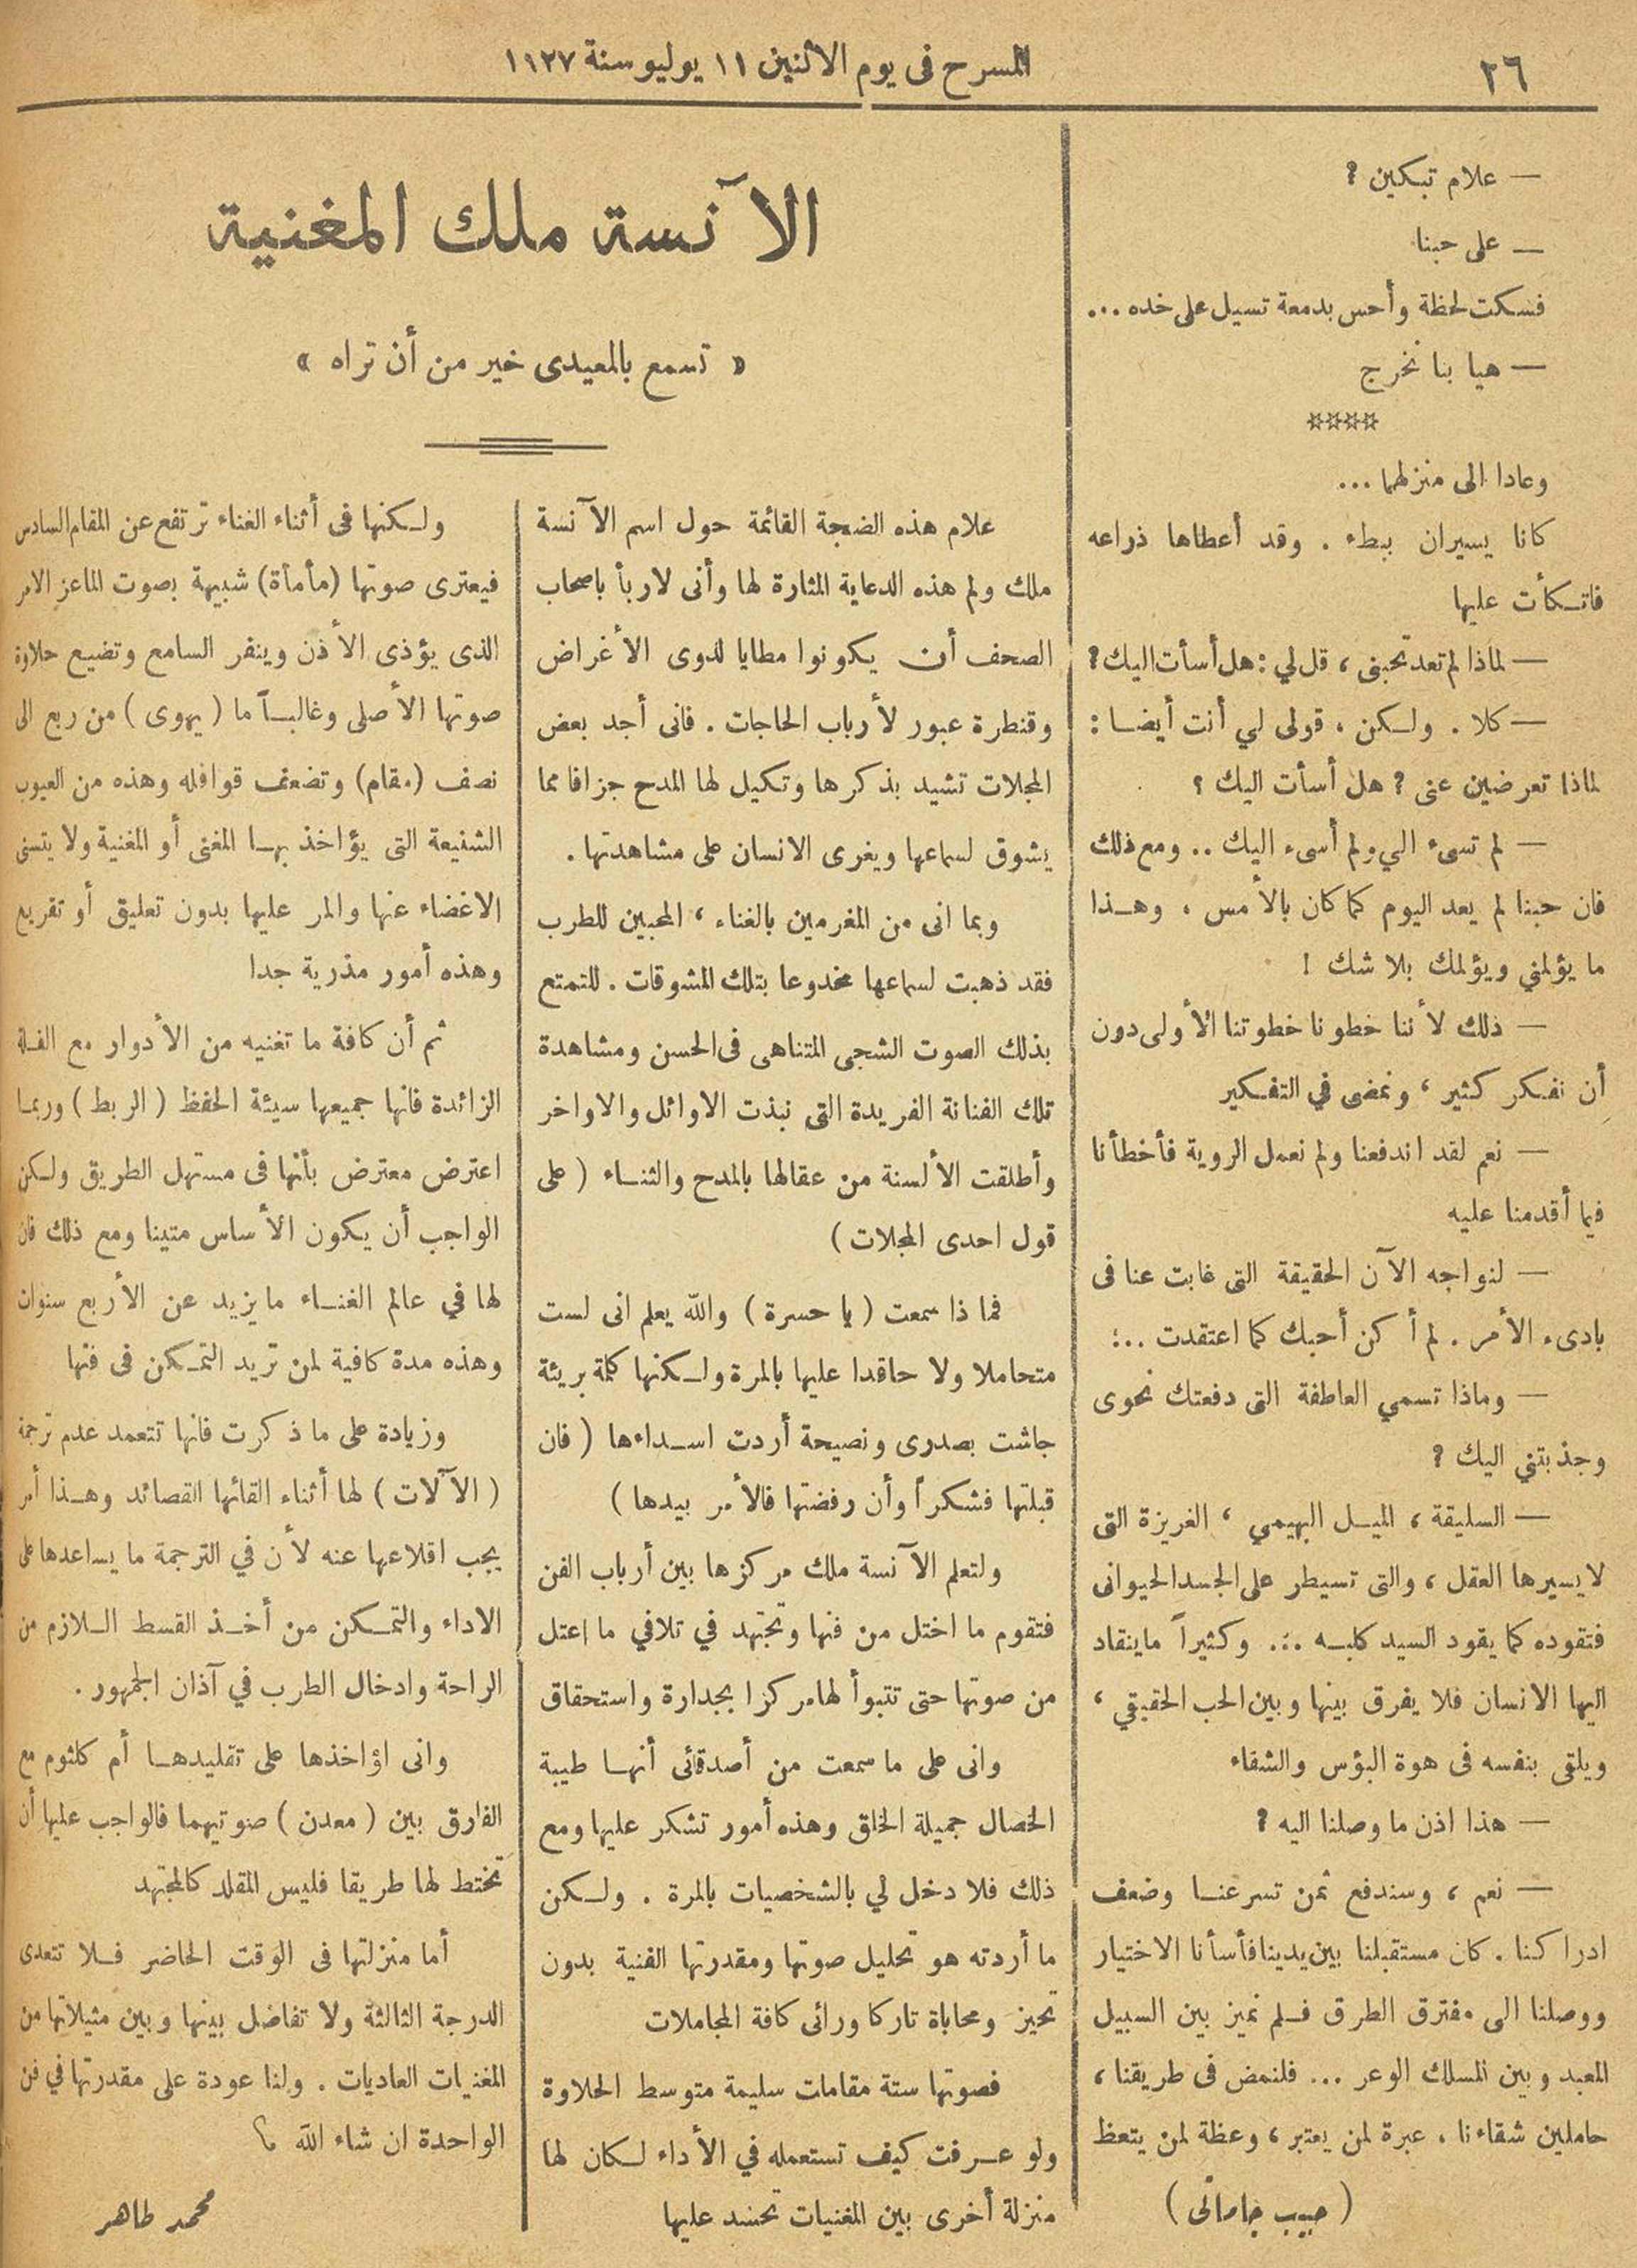 ٢٦
المسرح فى يوم الاثنين ١١ يوليو سنة ١٩٢٧
— علام تبكين ؟
— على حبنا
فسكت لحظة وأحس بدمعة تسيل على خده ...
— هيا بنا نخرج
****
وعادا الى منزلهما ...
كانا يسيران ببطء . وقد أعطاها ذراعه
فاتكأت عليها
— لماذا لم تعد تحبنى ، قل لي : هل أسأت اليك ؟
— كلا . ولكن ، قولى لي أنت أيضا :
لماذا تعرضين عنى ؟ هل أسأت اليك ؟
— لم تسىء الي ولم أسىء اليك .. ومع ذلك
فان حبنا لم يعد اليوم كما كان بالأمس ، وهذا
ما يؤلمني ويؤلمك بلا شك !
— ذلك لأننا خطونا خطوتنا الأولى دون
أن نفكر كثير ، ونمضى في التفكير
— نعم لقد اندفعنا ولم نعمل الروية فأخطأنا
فيما أقدمنا عليه
— لنواجه الآن الحقيقة التى غابت عنا فى
بادىء الأمر . لم أكن أحبك كما اعتقدت ...
— وماذا تسمي العاطفة التى دفعتك نحوى
وجذبتني اليك ؟
— السليقة ، الميل البهيمي ، الغريزة التى
لا يسيرها العقل ، والتى تسيطر على الجسد الحيوانى
فتقوده كما يقود السيد كلبه ... وكثيراً ماينقاد
اليها الانسان فلا يفرق بينها وبين الحب الحقيقي ،
ويلقى بنفسه فى هوة البؤس والشقاء
— هذا اذن ما وصلنا اليه ؟
— نعم ، وسندفع ثمن تسرعنا وضعف
ادراكنا . كان مستقبلنا بين يدينا فأسأنا الاختيار
ووصلنا الى مفترق الطرق فلم نميز بين السبيل
المعبد وبين المسلك الوعر ... فلنمض فى طريقنا ،
حاملين شقاءنا ، عبرة لمن يعتبر ، وعظة لمن يتعظ
( حبيب جاماتى )
الآنسة ملك المغنية
« تسمع بالمعيدى خير من أن تراه »
علام هذه الضجة القائمة حول اسم الآنسة
ملك ولم هذه الدعاية المثارة لها وأنى لاربأ باصحاب
الصحف أن يكونوا مطايا لذوى الأغراض
وقنطرة عبور لأرباب الحاجات . فانى أجد بعض
المجلات تشيد بذكرها وتكيل لها المدح جزافا مما
يشوق لسماعها ويغرى الانسان على مشاهدتها .
وبما انى من المغرمين بالغناء ، المحبين للطرب
فقد ذهبت لسماعها مخدوعا بتلك المشوقات . للتمتع
بذلك الصوت الشجى المتناهى فى الحسن ومشاهدة
تلك الفنانة الفريدة التى نبذت الاوائل والاواخر
وأطلقت الألسنة من عقالها بالمدح والثناء ( على
قول احدى المجلات )
فما ذا سمعت ( يا حسرة ) والله يعلم انى لست
متحاملا ولا حاقدا عليها بالمرة ولكنها كلمة بريئة
جاشت بصدرى ونصيحة أردت اسداءها ( فان
قبلتها فشكراً وأن رفضتها فالأمر بيدها )
ولتعلم الآنسة ملك مركزها بين أرباب الفن
فتقوم ما اختل من فنها وتجتهد في تلافي ما اعتل
من صوتها حتى تتبوأ لها مركزا بجدارة واستحقاق
وانى على ما سمعت من أصدقائى أنها طيبة
الخصال جميلة الخلق وهذه أمور تشكر عليها ومع
ذلك فلا دخل لي بالشخصيات بالمرة . ولكن
ما أردته هو تحليل صوتها ومقدرتها الفنية بدون
تحيز ومحاباة تاركا ورائى كافة المجاملات
فصوتها ستة مقامات سليمة متوسط الحلاوة
ولو عرفت كيف تستعمله في الأداء لكان لها
منزلة أخرى بين المغنيات تحسد عليها
ولكنها فى أثناء الغناء ترتفع عن المقام السادس
فيعترى صوتها (مأمأة) شبيهة بصوت الماعز الامر
الذى يؤذى الأذن وينفر السامع وتضيع حلاوة
صوتها الأصلى وغالباً ما ( يهوى ) من ربع الى
نصف (مقام) وتضعف قوافله وهذه من العيوب
الشنيعة التى يؤاخذ بها المغنى أو المغنية ولا يتسنى
الاغضاء عنها والمر عليها بدون تعليق أو تقريع
وهذه أمور مذرية جدا
ثم أن كافة ما تغنيه من الأدوار مع القلة
الزائدة فانها جميعها سيئة الحفظ ( الربط ) وربما
اعترض معترض بأنها فى مستهل الطريق ولكن
الواجب أن يكون الأساس متينا ومع ذلك فان
لها في عالم الغناء ما يزيد عن الأربع سنوات
وهذه مدة كافية لمن تريد التمكن فى فنها
وزيادة على ما ذكرت فانها تتعمد عدم ترجمة
( الآلات ) لها أثناء القائها القصائد وهذا أمر
يجب اقلاعها عنه لأن في الترجمة ما يساعدها على
الاداء والتمكن من أخذ القسط اللازم من
الراحة وادخال الطرب في آذان الجمهور .
وانى اؤاخذها على تقليدها أم كلثوم مع
الفارق بين ( معدن ) صوتيهما فالواجب عليها أن
تختط لها طريقا فليس المقلد كالمجتهد
أما منزلتها فى الوقت الحاضر فلا تتعدى
الدرجة الثالثة ولا تفاضل بينها وبين مثيلاتها من
المغنيات العاديات . ولنا عودة على مقدرتها في فن
الواحدة ان شاء الله
محمد طاهر